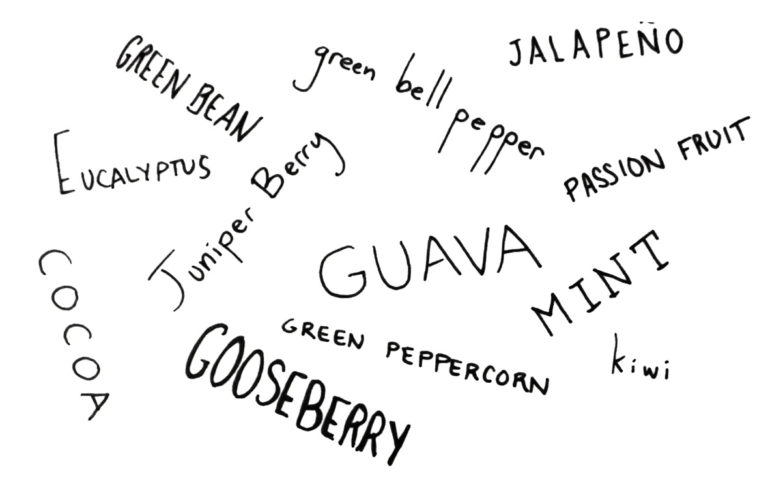 GREEN BEAN
green bell pepper
JALAPEÑO
EUCALYPTUS
Juniper Berry
PASSION FRUIT
GUAVA
MINT
COCOA
GREEN PEPPERCORN
kiwi
GOOSEBERRY